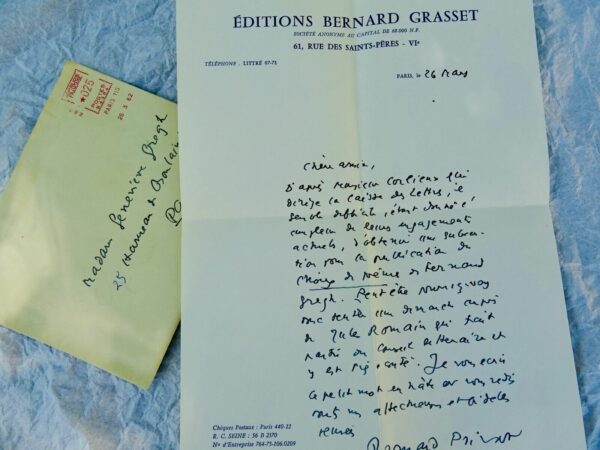 ÉDITIONS BERNARD GRASSET
SOCIÉTÉ ANONYME AU CAPITAL DE 68.000 N.F.
61, RUE DES SAINTS-PÈRES - VIe
TÉLÉPHONE : LITTRÉ 07-71
PARIS, le 26 Mars
Chère amie,
D'après Monsieur Corlieux qui
dirige la Caisse des Lettres, il
semble difficile, étant donné l'
ampleur de leurs engagements
actuels, d'obtenir une subven
tion pour la publication du
Choix de Poèmes de Fernand
Gregh. Peut-être pourriez-vous
tenter une démarche auprès
de Jules Romains qui fait
partie du Conseil littéraire et
y est
Je vous écris
ce petit mot en hâte
affectueux et fidèles
Bernard Privat
Chèques Postaux : Paris 440-22
R. C. SEINE : 56 B 2370
No d'Entreprise 764-75-106.0209
0,25
POSTES
PARIS 110
26 3 62
Madame Geneviève Gregh
25 Hameau de Boulain